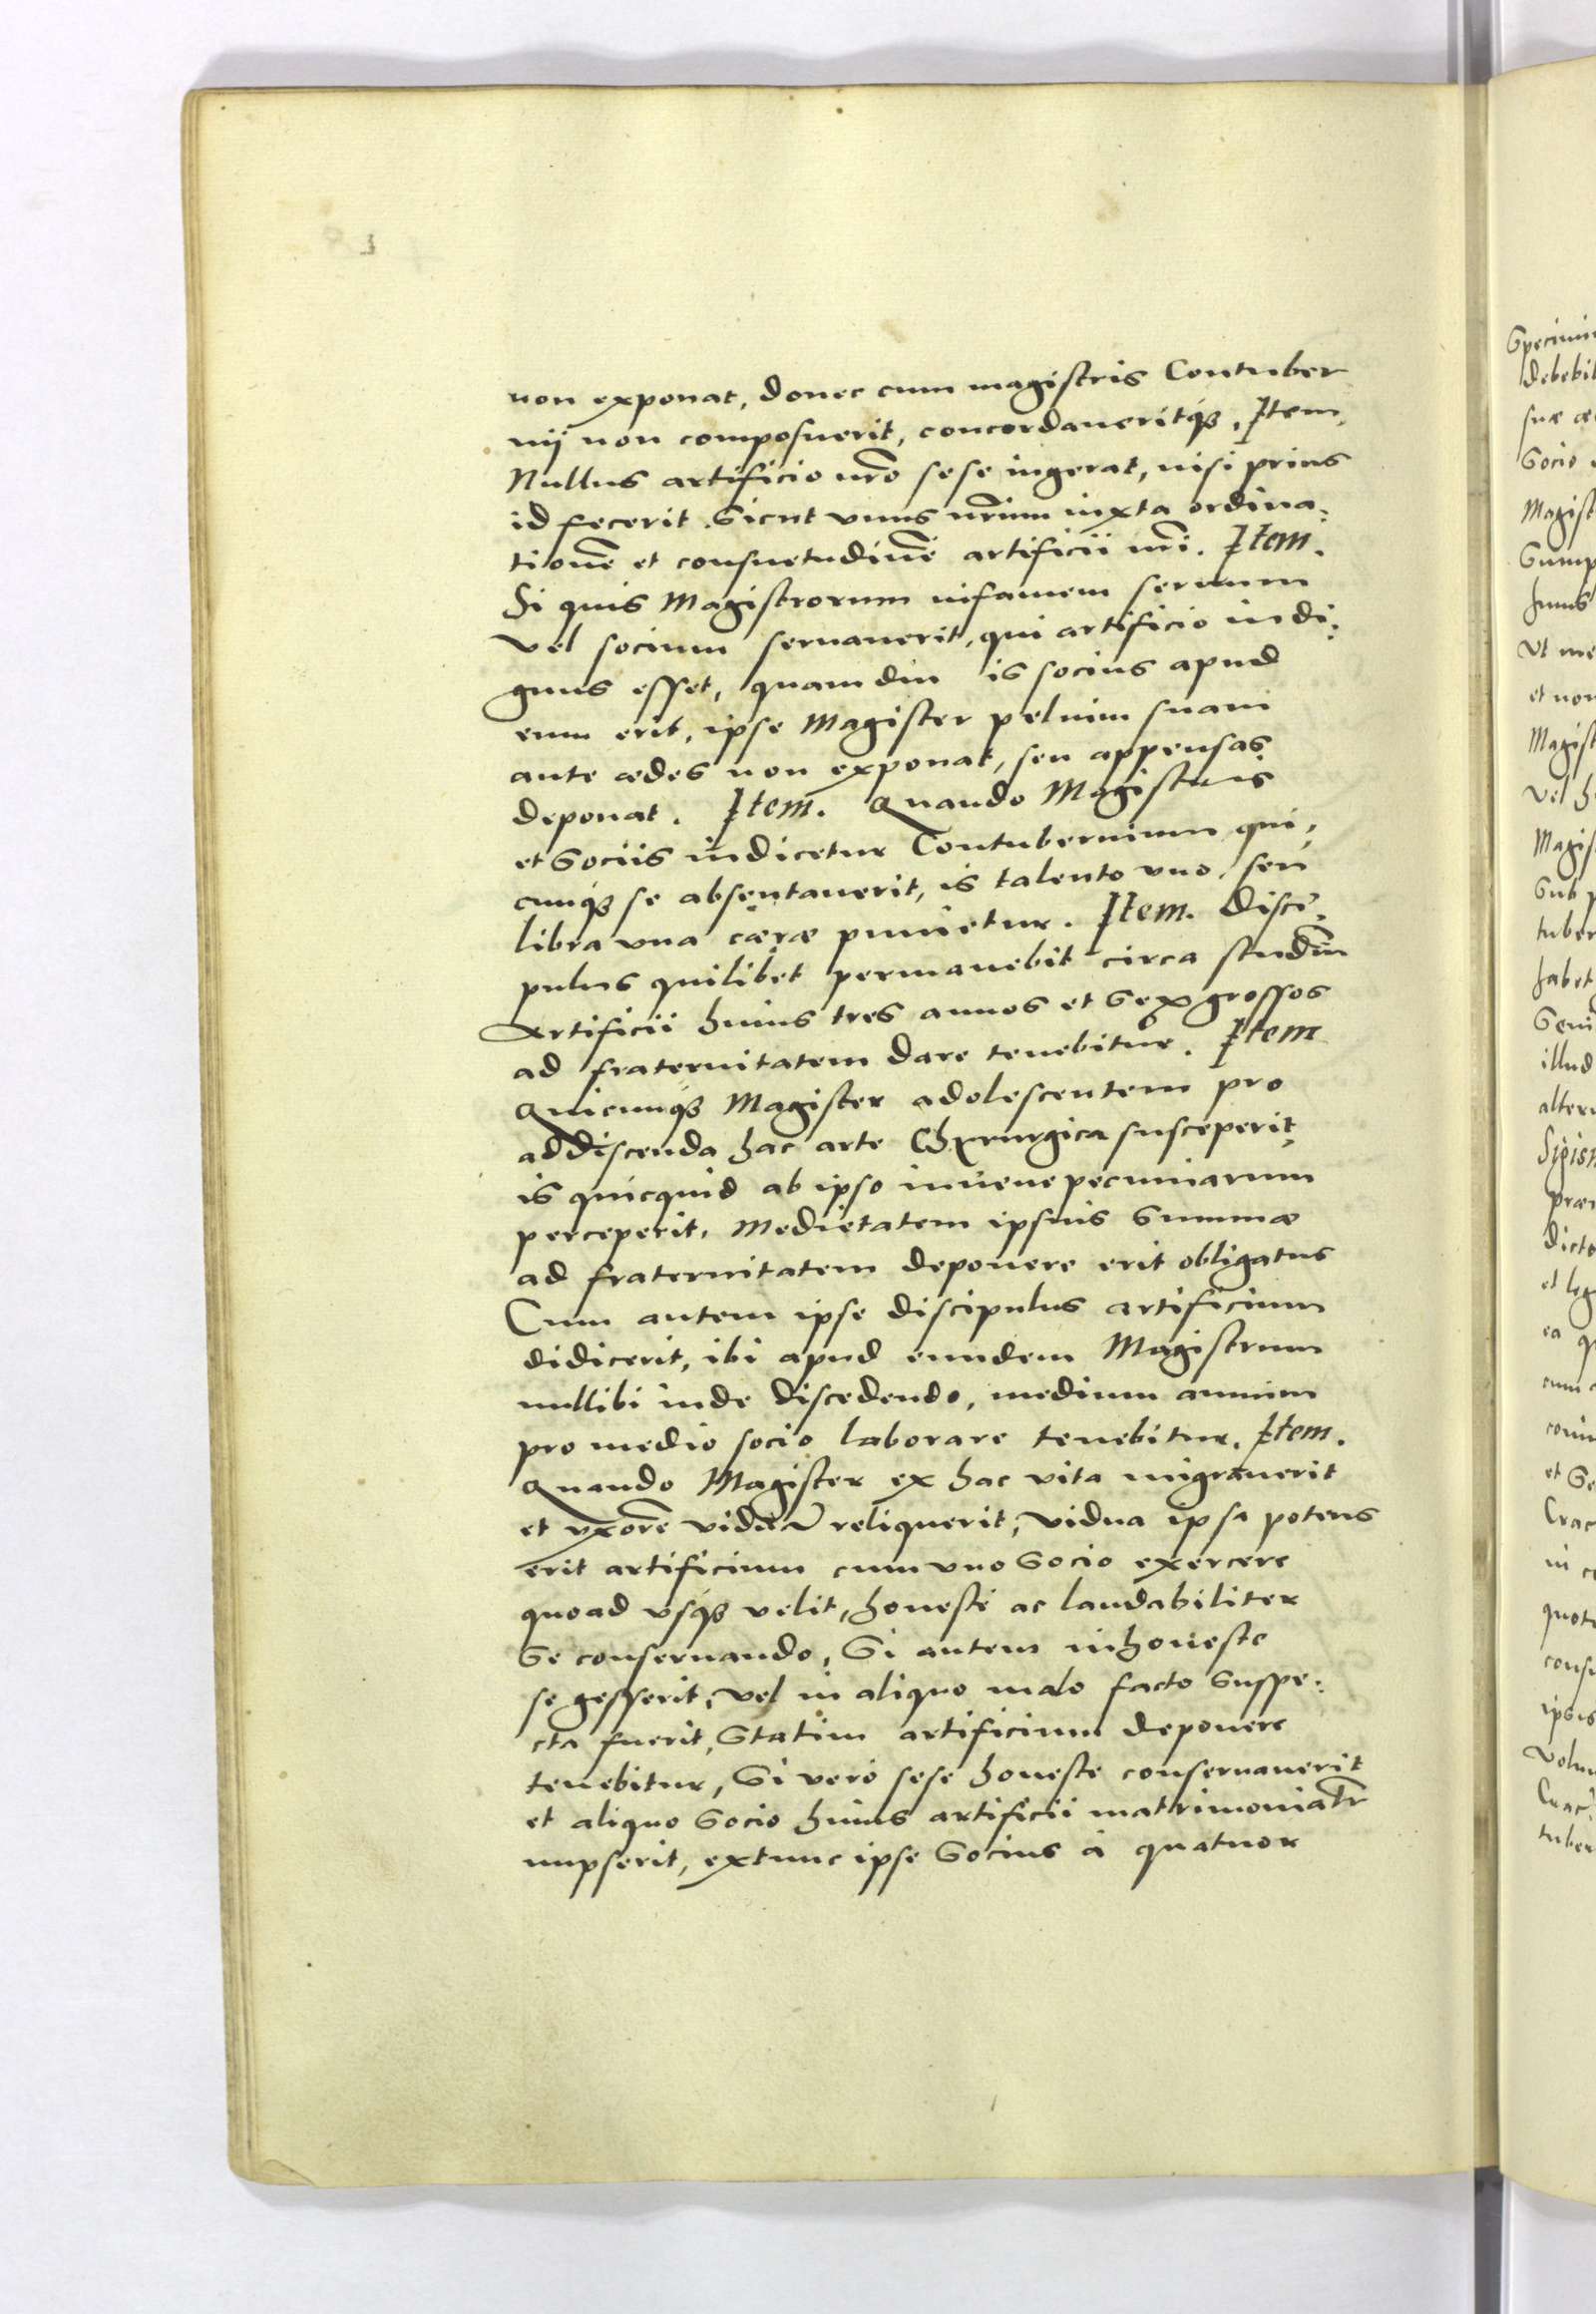 non exponat, donec cum magistris Contuber
nij non composuerit, concordaueritq́ꝫ. Item.
Nullus artificio nr̃o sese ingerat, nisi prius
id fecerit. Sicut vnus nr̃um iuxta ordina⸗
tionẽ et consuetudinẽ artificii nr̃i. Item.
Si quis Magistrorum infamem seruum
vel socium seruauerit, qui artificio indi⸗
gnus esset, quamdiu is socius apud
eum erit, ipse Magister peluim suam
ante ædes non exponat, seu appensas
deponat. Item. Quando Magistris
et Sociis indicetur Contubernium, qui⸗
cunq́ꝫ se absentauerit, is talento vno, seu
libra vna cæræ punietur. Item. Disci⸗
pulus quilibet permanebit circa studiũ
Artificii huius tres annos et Sex grossos
ad fraternitatem dare tenebitur. Item
Quicunq́ꝫ Magister adolescentem pro
addiscenda hac arte Chyrurgica susceperit,
is quicquid ab ipso iuuene pecuniarum
perceperit, Medietatem ipsius Summæ
ad fraternitatem deponere erit obligatus
Cum autem ipse discipulus artificium
didicerit, ibi apud eundem Magistrum
nullibi inde discedendo, medium annum
pro medio socio laborare tenebitur. Item.
Quando Magister ex hac vita migrauerit
et vxorẽ viduã reliquerit, vidua ipsa potens
erit artificium cum vno Socio exercere
quoad vsq́ꝫ velit, honeste ac laudabiliter
Se conseruando, Si autem inhoneste
se gesserit, vel in aliquo malo facto Suspe⸗
cta fuerit, Statim artificium deponere
tenebitur, Si vero sese honeste conseruauerit
et aliquo Socio huius artificii matrimonialr̃
nupserit, extunc ipse Socius à quatuor
Magist
et non
Magist
Magis
habet
illud
dicto
ea
Crac
in